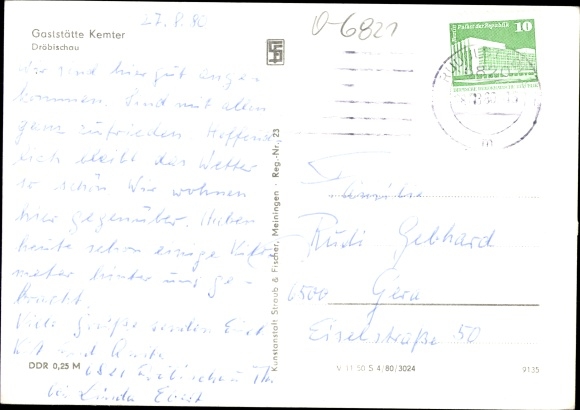 27.8.80
0-6821
Gaststätte Kemter
Dröbischau
Wir sind hier gut ange-
kommen. Sind mit allem
ganz zufrieden Hoffent-
lich bleibt das Wetter
so schön Wir wohnen
hier gegenüber. Haben
heute schon einige Kilo-
meter hinter uns ge-
bracht.
Viele Grüße senden Euch
und
6821 Dröbischau Th
bei Linda
DDR 0,25 M
Kunstanstalt Straub & Fischer, Meiningen · Reg.-Nr. 23
Berlin Palast der Republik 10
Familie
Rudi Gebhard
6500 Gera
Eiselstraße 50
V 11 50 S 4/80/3024
9135